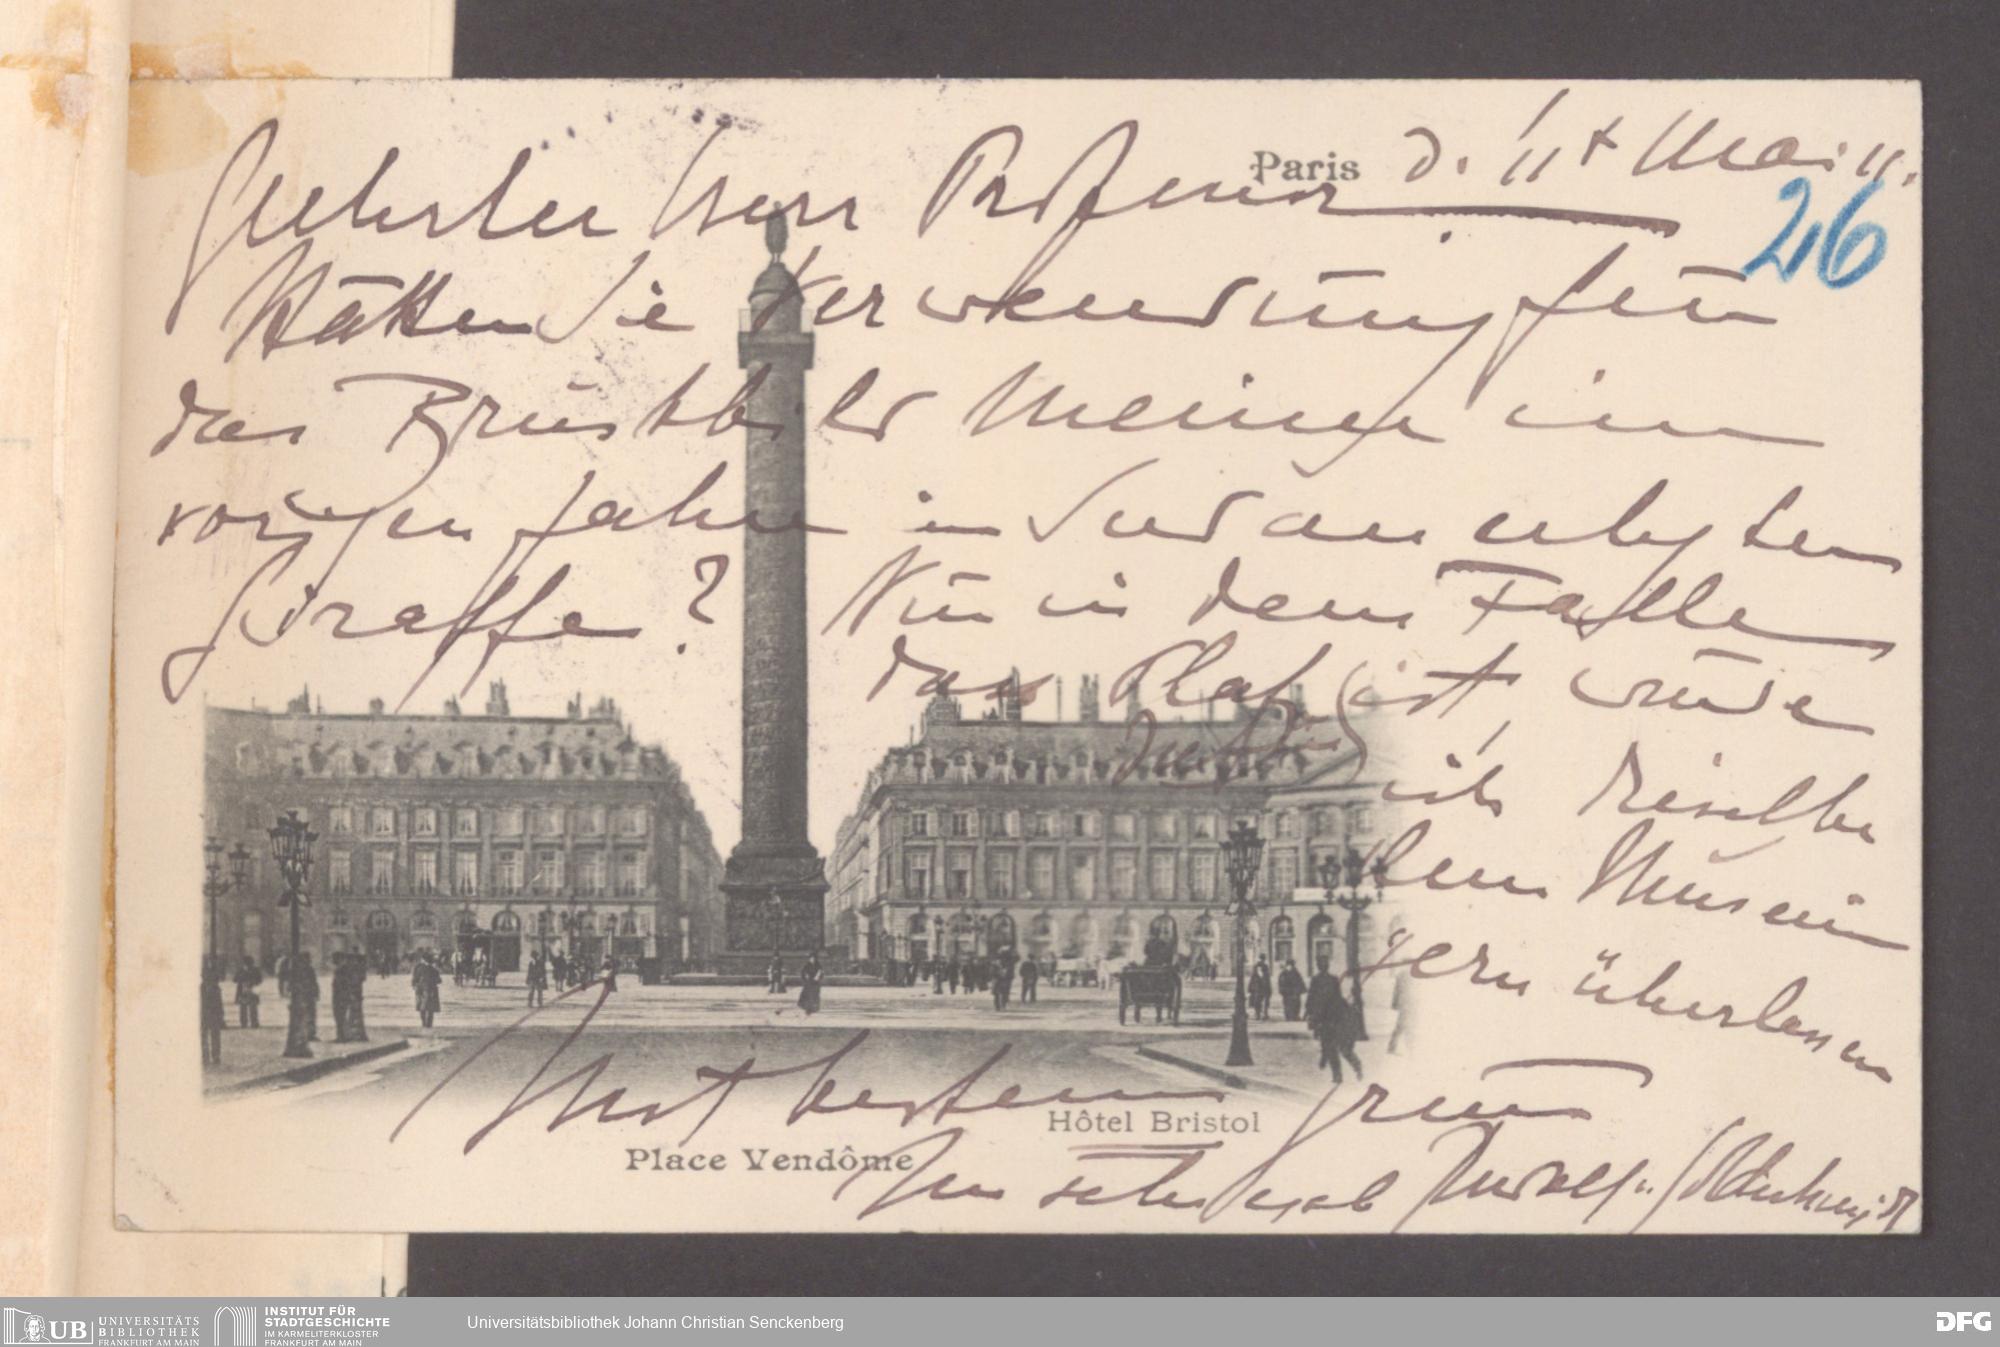 Paris d. 11t Mai 11.
26
Geehrter Herr Professor
Hätten Sie Verwendung für
das Brustbild meiner im
vorigen Jahre in Sudan erlegten
Giraffe? Nur in dem Falle
dass Platz ist, würde
ich dieselbe
dem Museum
gern überlassen
Mit bestem Gruss
Hôtel Bristol
Place Vendôme
Ihr sehr ergeb Rudolf v. Goldschmidt
UB UNIVERSITÄTS
BIBLIOTHEK
FRANKFURT AM MAIN
INSTITUT FÜR
STADTGESCHICHTE
IM KARMELITERKLOSTER
FRANKFURT AM MAIN
Universitätsbibliothek Johann Christian Senckenberg
DFG